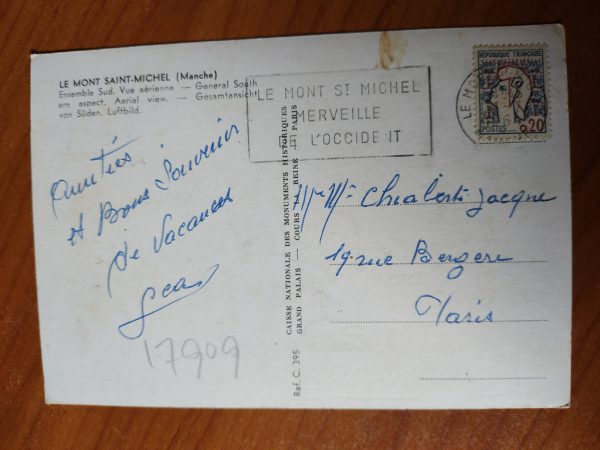 LE MONT SAINT-MICHEL (Manche)
Ensemble Sud. Vue aérienne — General South
ern aspect. Aerial view. — Gesamtansicht
von Süden. Luftbild.
LE MONT ST MICHEL
MERVEILLE
L'OCCIDENT
LE MO
REPUBLIQUE FRANÇAISE
POSTES 0,20
Amitiés
et Bons Souvenir
de Vacances
17909
CAISSE NATIONALE DES MONUMENTS HISTORIQUES
GRAND PALAIS — COURS LA REINE — PARIS
Ref. C. 395
Jacque
19 rue Bergere
Paris